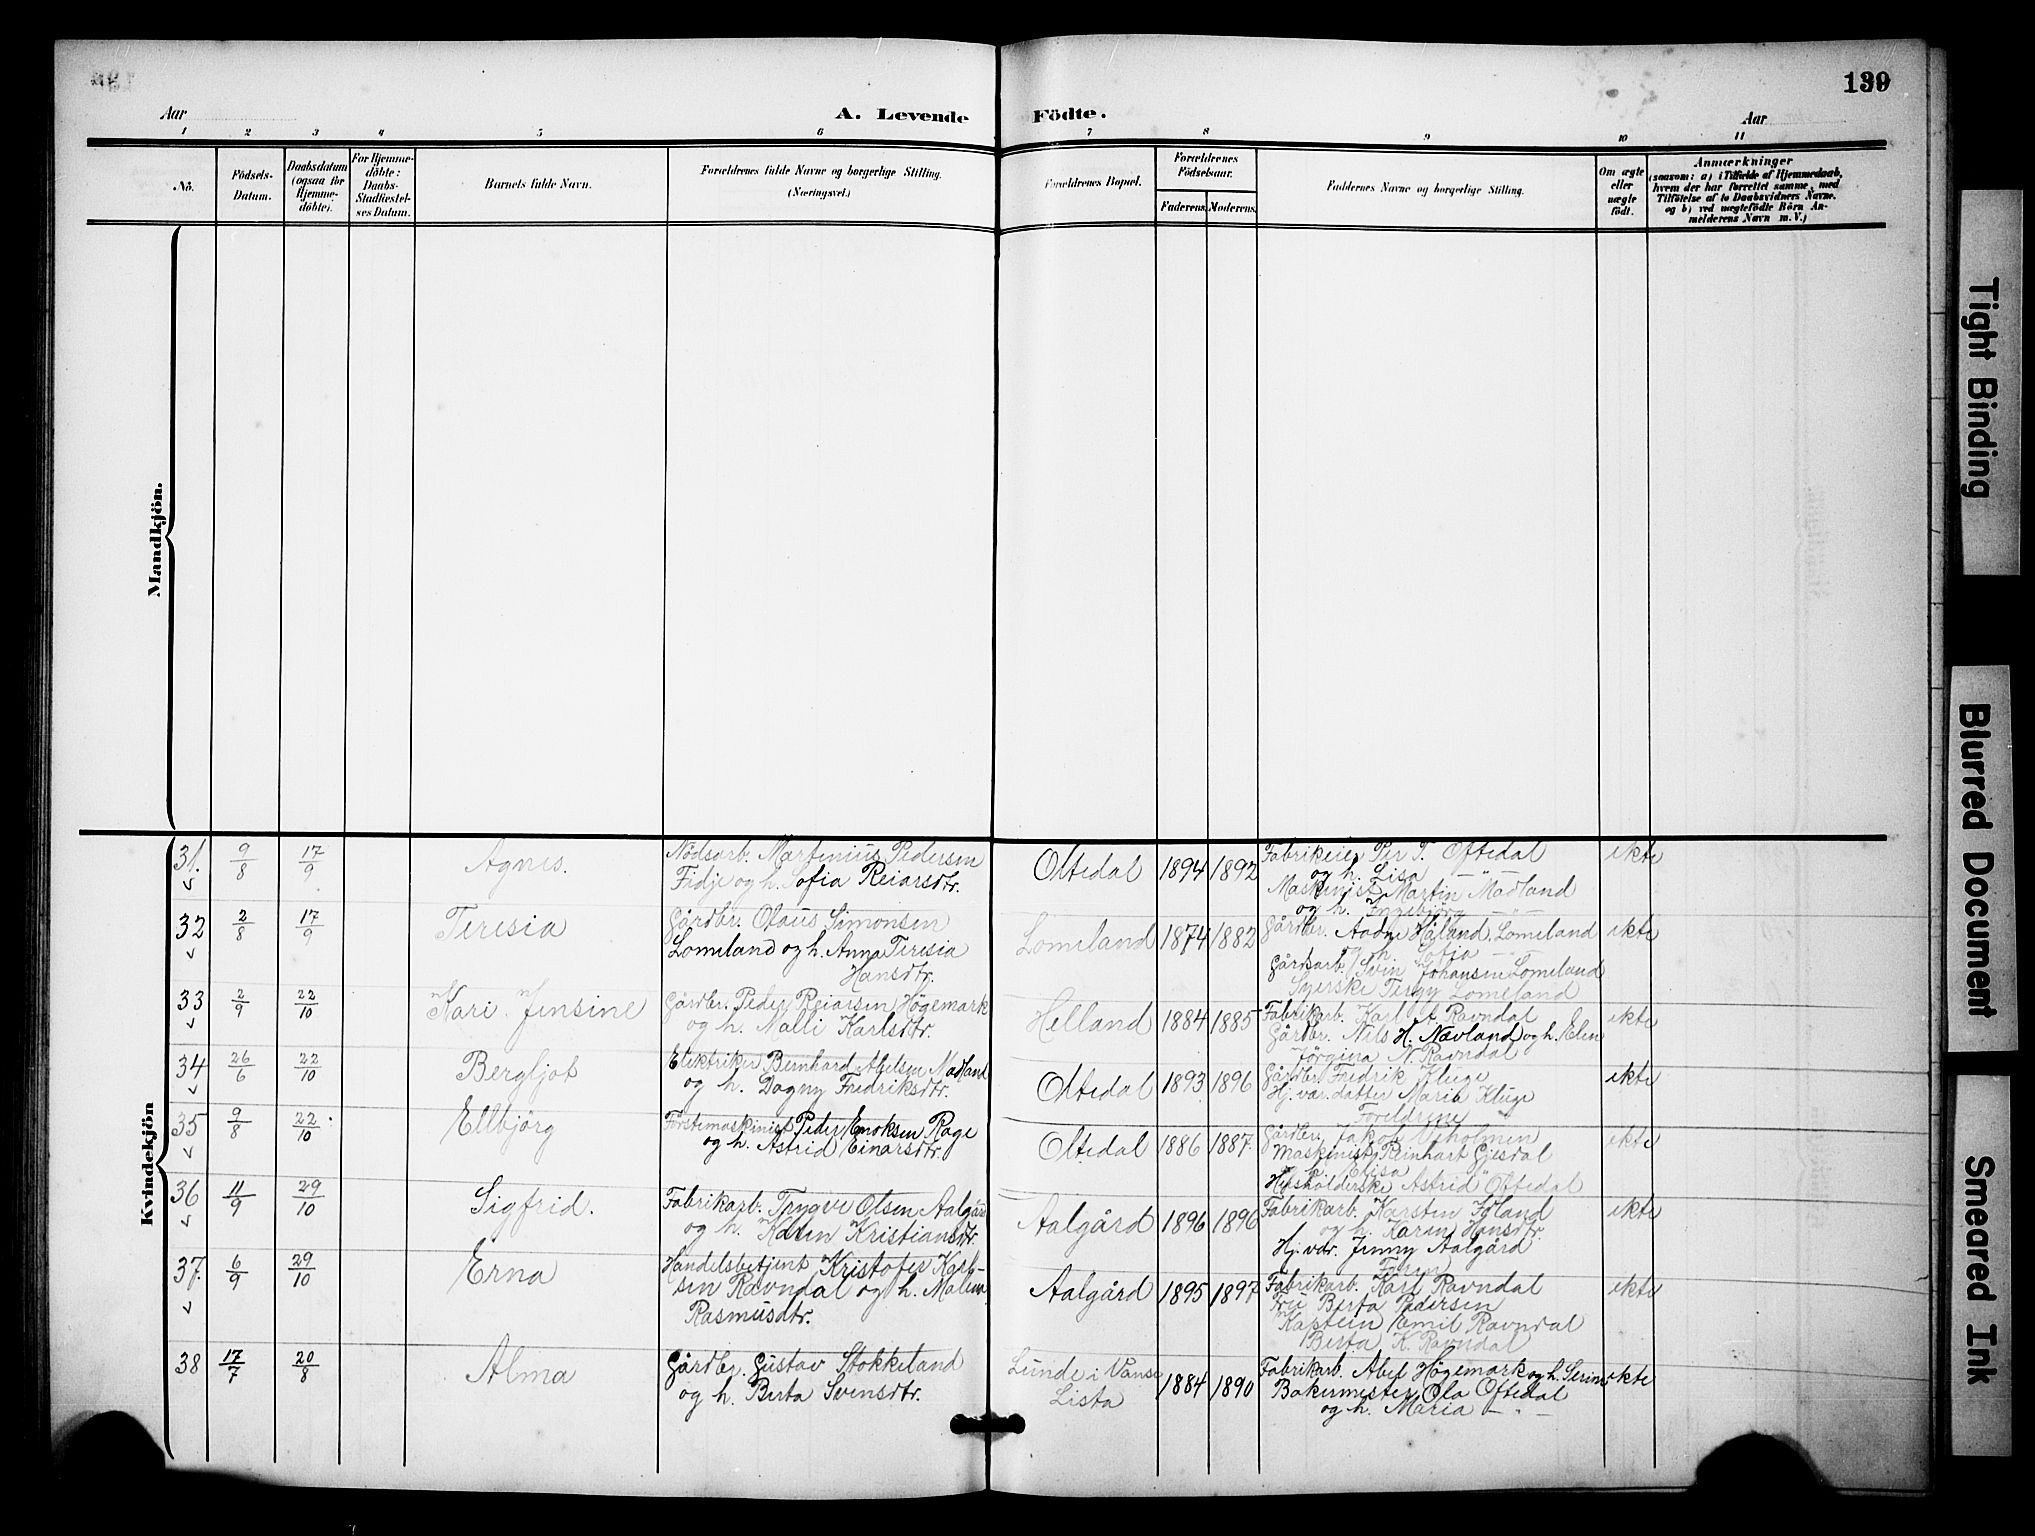 139
Aar
A. Levende Födte.
Aar
1 2 3 4 5 6 7 8 9 10 11
No.
Födsels-
Datum.
Daabsdatum
(ogsaa for
Hjemme-
döbte).
For Hjemme-
döbte:
Daabs-
Stadfæstel-
ses Datum.
Barnets fulde Navn.
Forældrenes fulde Navne og borgerlige Stilling.
(Næringsvei.)
Forældrenes Bopæl.
Forældrenes
Födselsaar.
Faderens. Moderens.
Faddernes Navne og borgerlige Stilling.
Om ægte
eller
uægte
födt.
Anmærkninger
(saasom: a) i Tilfælde af Hjemmedaab,
hvem der har forrettet samme, med
Tilföielse af to Daabsvidners Navne.
og b) ved uægtefödte Börn An-
melderens Navn m. V.)
Mandkjön.
Kvindekjön
31. 9/8 17/9 Agnes.
Nödsarb. Martinius Pedersen
Fidje og h. Sofia Reiarsdtr.
Oltedal 1894 1892
Fabrikeier Per T. Oftedal
og h. Lisa — " —
Maskinist Martin Madland
og h. Ingebjörg — " —
ekte
32 2/8 17/9 Teresia
Gårdbr. Olaus Simonsen
Lomeland og h. Anna Teresia
Hansdtr.
Lomeland 1874 1882
Gårdbr. Aadne Håland, Lomeland
og h. Sofia — " —
Gårdsarb. Svein Johansen Lomeland
Syerske Tergy Lomeland
ekte
33 2/9 22/10 Kari Jensine
Gårdbr. Peder Reiarsen Högemark
og h. Malli Karlsdtr.
Helland 1884 1885
Fabrikarb. Karl A. Ravndal
Gårdbr. Nils H. Nævland og h. Elen
Jörgina N. Ravndal
ekte
34 26/6 22/10 Bergljot
Elektriker Bernhard Abelsen Madland
og h. Dagny Fredriksdtr.
Oltedal 1893 1896
Gårdbr. Fredrik Kluge
Hj. vær. datter Maria Kluge
Foreldrene
ekte
35 9/8 22/10 Ellbjörg
Förstemaskinist Peder Enoksen Rage
og h. Astrid Einarsdtr.
Oltedal 1886 1887
Gårdbr. Jakob Veholmen
Maskinist Reinhart Gjesdal
og h. Elisa
Husholderske Astrid Oftedal
ekte
36 11/9 29/10 Sigfrid.
Fabrikarb. Trygve Olsen Aalgård
og h. Karen Kristiansdtr.
Aalgård 1896 1896
Fabrikarb. Karsten Edland
og h. Karen Hansdtr.
Hj. vær. Jenny Aalgård
Faren
ekte
37. 6/9 29/10 Erna
Handelsbetjent Kristofer Karl-
sen Ravndal og h. Malena
Rasmusdtr.
Aalgård 1895 1897
Fabrikarb. Karl Ravndal
Fru Berta Pedersen
Kaptein Emil Ravndal
Berta K. Ravndal
ekte
38 17/7 20/8 Alma
Gårdbr. Gustav Stokkeland
og h. Berta Svensdtr.
Lunde i Vanse
Lista
1884 1890
Fabrikarb. Abel Högemark og h. Serina
Bakermester Ola Oftedal
og h. Maria — " —
ekte
Tight Binding
Blurred Document
Smeared Ink